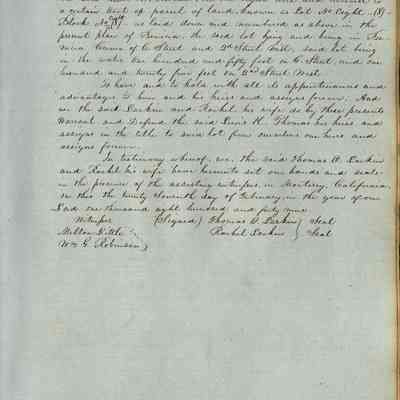 a certain lot or parcel of land, known as Lot No Eight (8)
Block No (8) as laid down and numbered as above in the
present plan of Benicia, the said lot lying and being in
corner of C Street and 2nd Street West, said lot being
in the whole one hundred and fifty feet on C Street and one
hundred and twenty five feet on 2nd Street West.
To have and to hold with all its appurtenances and
advantages to him and his heirs and assigns forever. And
we the said Larkin and Rachel his wife do by these presents
Warrant and Defend the said Lewis H. Thomas his heirs and
assigns in the title to said lot from ourselves our heirs and
assigns forever.
In testimony whereof, we, the said Thomas O. Larkin
and Rachel his wife have hereunto set our hands and seals
in the presence of the assisting witnesses, in Monterey, California
on this the twenty seventh day of February, in the year of our
Lord one thousand eight hundred and forty nine
Witnesses (Signed) Thomas O. Larkin Seal
Milton Little Rachel Larkin Seal
Wm G. Robinson